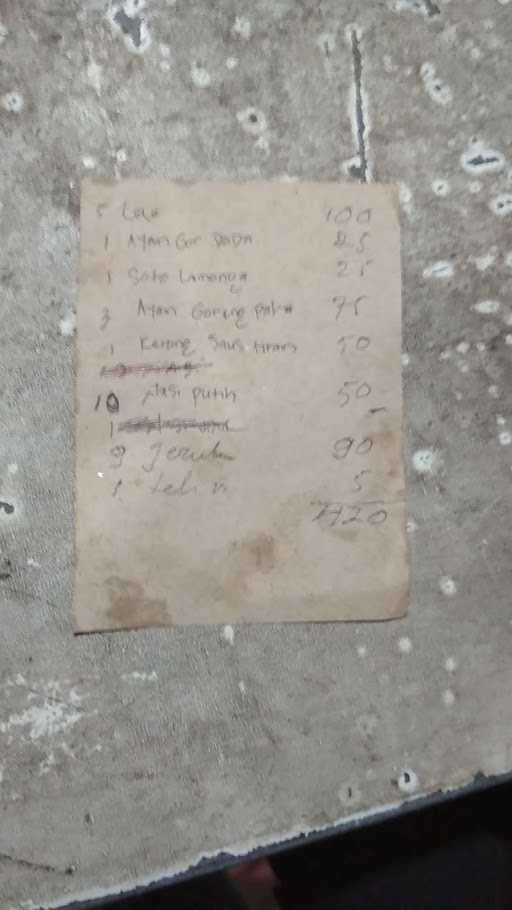 5 Lele 100
1 Ayam Gor Dada 25
1 Soto Lamongan 25
3 Ayam Goreng paha 75
1 Kerang Saus tiram 50
10 Nasi putih 50
9 Jeruk 90
1 teh 5
420